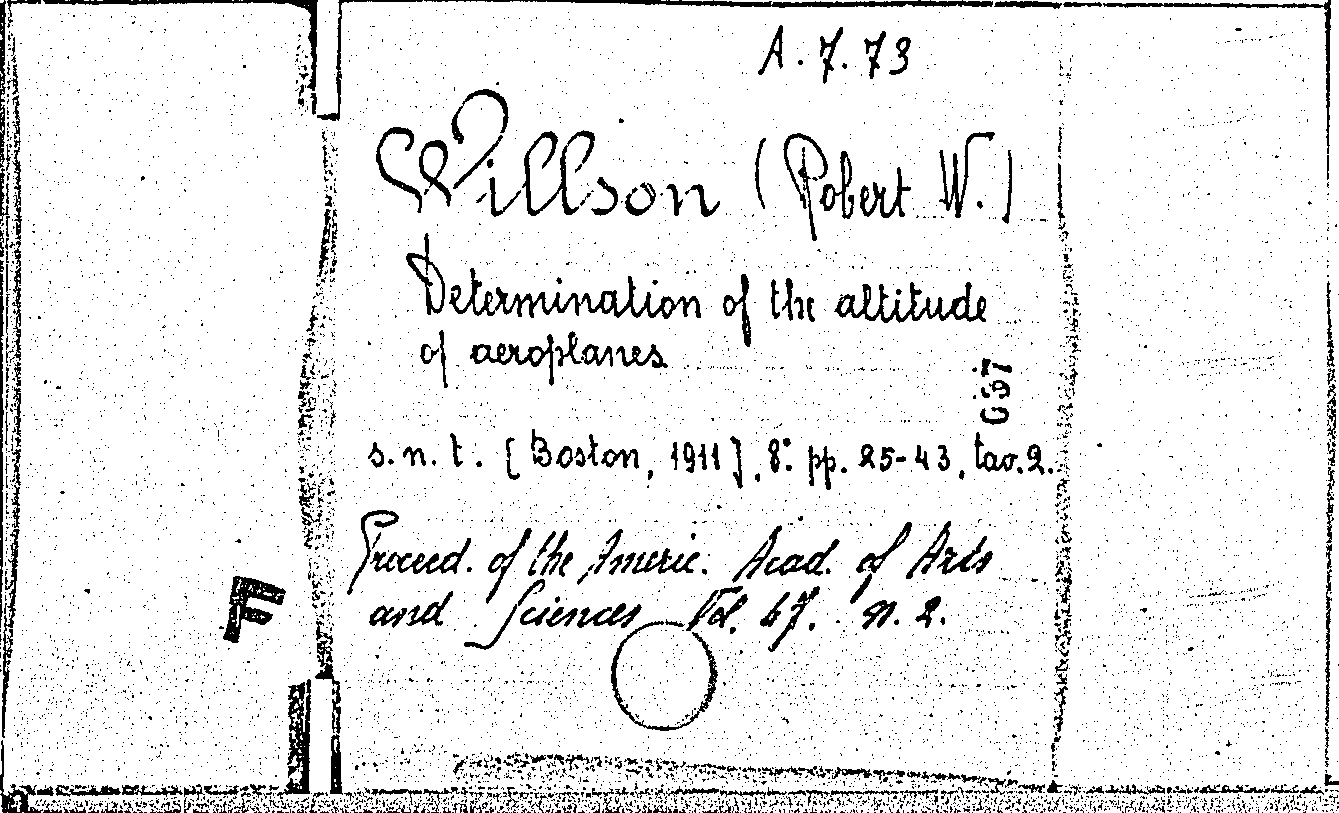 A. 7. 73
Willson (Robert W.)
Determination of the altitude
of aeroplanes
s. n. t. [Boston, 1911], 8° pp. 25-43, tav. 2.
Proceed. of the Americ. Acad. of Arts
and Sciences Vol. 47. n. 2.
F